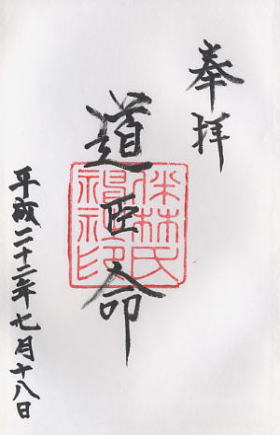 奉拝
道臣命
伴林氏神社印
平成二十二年七月十八日